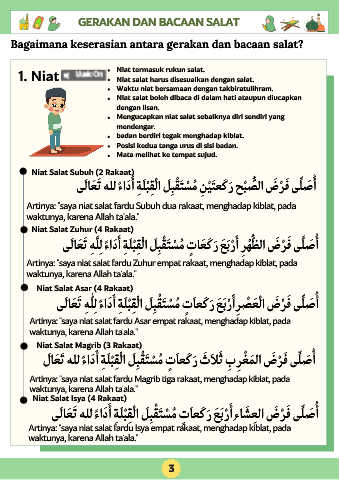 GERAKAN DAN BACAAN SALAT
Bagaimana keserasian antara gerakan dan bacaan salat?
1. Niat
• Niat termasuk rukun salat.
• Niat salat harus disesuaikan dengan salat.
• Waktu niat bersamaan dengan takbiratulihram.
• Niat salat boleh dibaca di dalam hati ataupun diucapkan
dengan lisan.
• Mengucapkan niat salat sebaiknya diri sendiri yang
mendengar.
• badan berdiri tegak menghadap kiblat.
• Posisi kedua tanga urus di sisi badan.
• Mata melihat ke tempat sujud.
Niat Salat Subuh (2 Rakaat)
أُصَلِّى فَرْضَ الصُّبْحِ رَكَعتَيْنِ مُسْتَقْبِلَ الْقِبْلَةِ أَدَاءً لله تَعَالَى
Artinya: "saya niat salat fardu Subuh dua rakaat, menghadap kiblat, pada
waktunya, karena Allah ta'ala."
Niat Salat Zuhur (4 Rakaat)
أُصَلِّى فَرْضَ الظُّهْرِ أَرْبَعَ رَكَعَاتٍ مُسْتَقْبِلَ الْقِبْلَةِ أَدَاءً لِلَّهِ تَعَالَى
Artinya: "saya niat salat fardu Zuhur empat rakaat, menghadap kiblat, pada
waktunya, karena Allah ta'ala."
Niat Salat Asar (4 Rakaat)
أُصَلِّى فَرْضَ الْعَصْرِ أَرْبَعَ رَكَعَاتٍ مُسْتَقْبِلَ الْقِبْلَةِ أَدَاءً لِلَّهِ تَعَالَى
Artinya: "saya niat salat fardu Asar empat rakaat, menghadap kiblat, pada
waktunya, karena Allah ta'ala."
Niat Salat Magrib (3 Rakaat)
أُصَلِّى فَرْضَ المَغْرِبِ ثَلاَثَ رَكَعَاتٍ مُسْتَقْبِلَ الْقِبْلَةِ أَدَاءً لله تَعَالَ
Artinya: "saya niat salat fardu Magrib tiga rakaat, menghadap kiblat, pada
waktunya, karena Allah ta'ala."
Niat Salat Isya (4 Rakaat)
أُصَلِّى فَرْضَ العشَاءِ أَرْبَعَ رَكَعَاتٍ مُسْتَقْبِلَ الْقِبْلَةِ أَدَاءً لله تَعَالَى
Artinya: "saya niat salat fardu Isya empat rakaat, menghadap kiblat, pada
waktunya, karena Allah ta'ala."
3